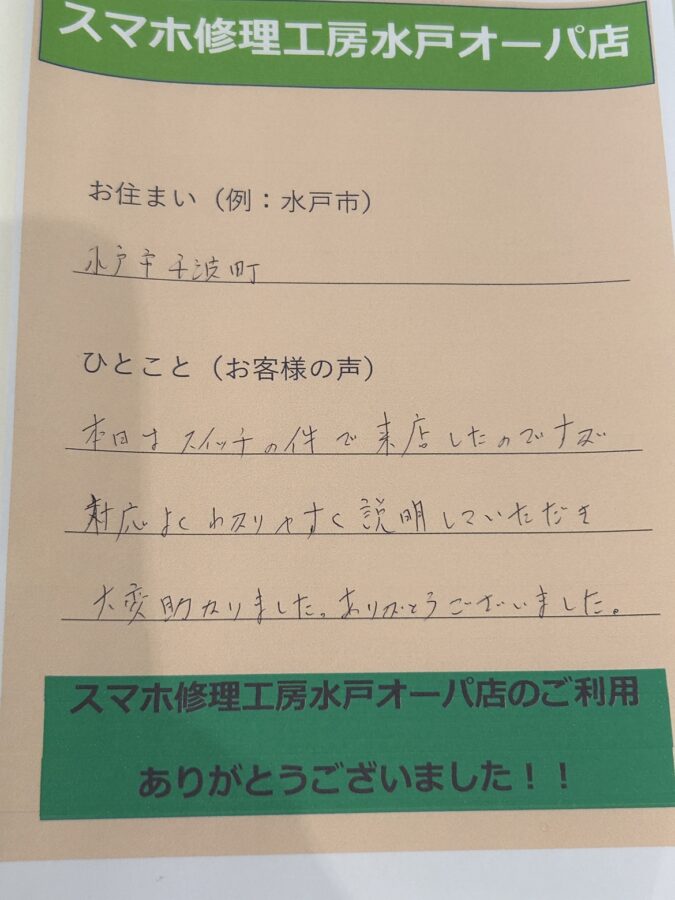 スマホ修理工房水戸オーパ店
お住まい（例：水戸市）
水戸市千波町
ひとこと（お客様の声）
本日はスイッチの件で来店したのですが
対応よくわかりやすく説明していただき
大変助かりました。ありがとうございました。
スマホ修理工房水戸オーパ店のご利用
ありがとうございました！！